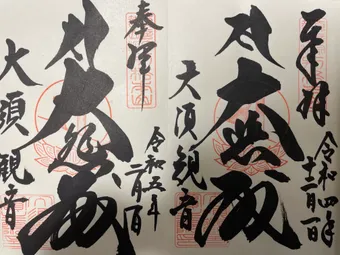 奉拝
令和四年
十二月一日
大悲殿
大須観音
奉拝
令和五年
大悲殿
大須観音